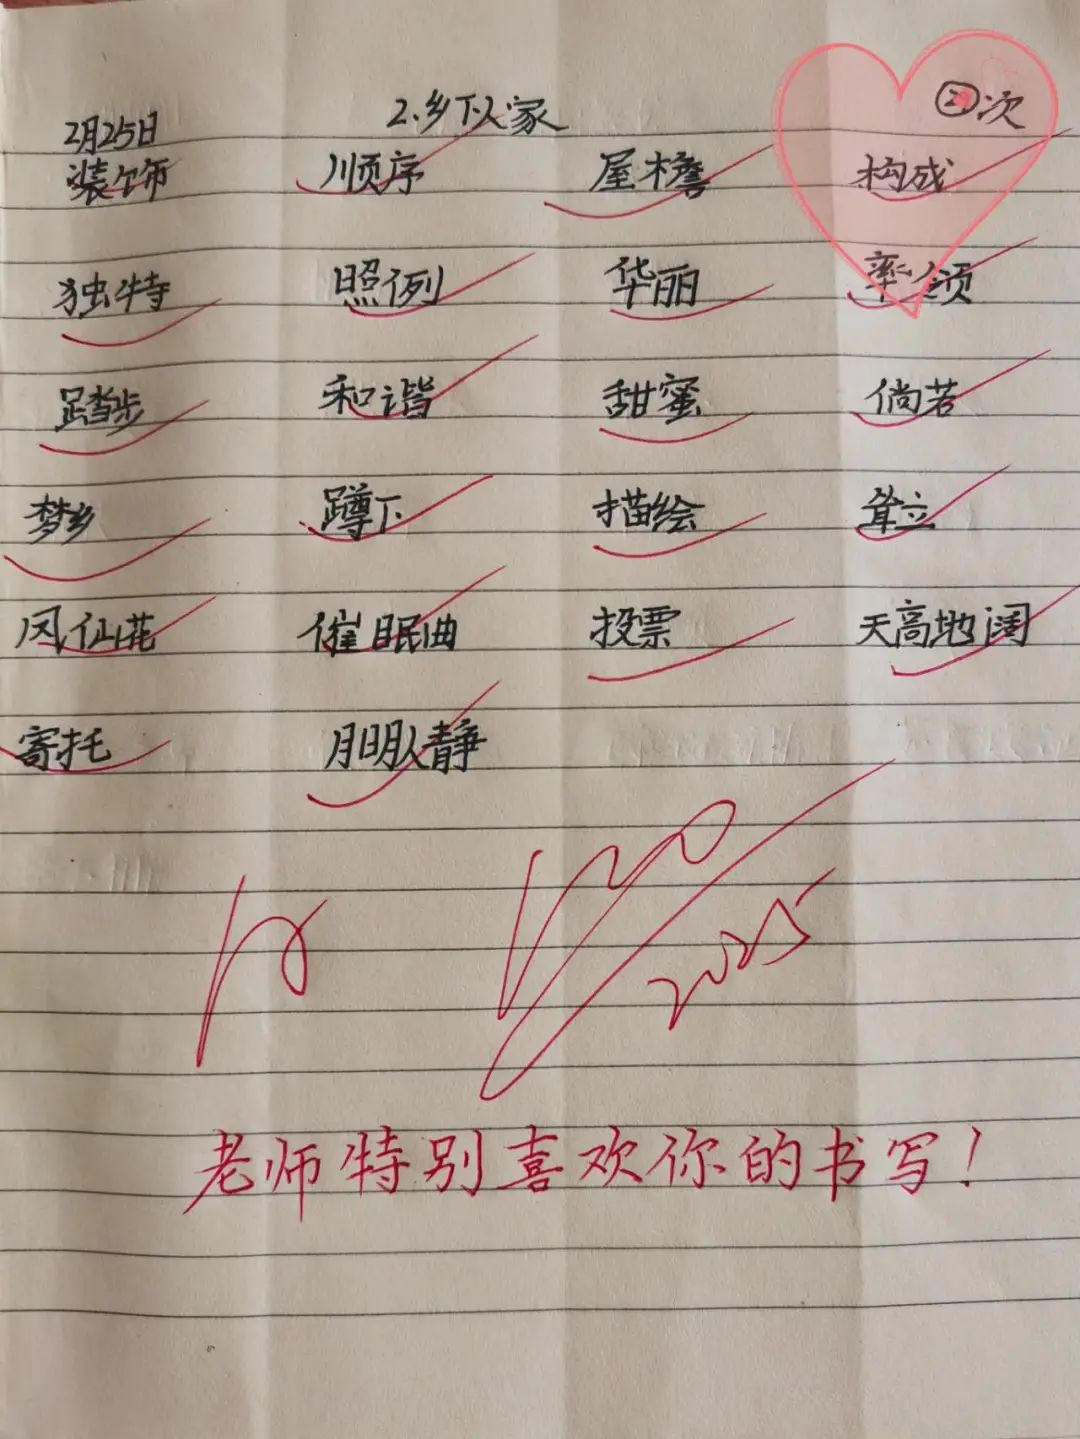 2.乡下人家 ②次
2月25日
装饰 顺序 屋檐 构成
独特 照例 华丽 率领
踏步 和谐 甜蜜 倘若
梦乡 蹲下 描绘 耸立
凤仙花 催眠曲 投票 天高地阔
寄托 月明人静
2025
老师特别喜欢你的书写!